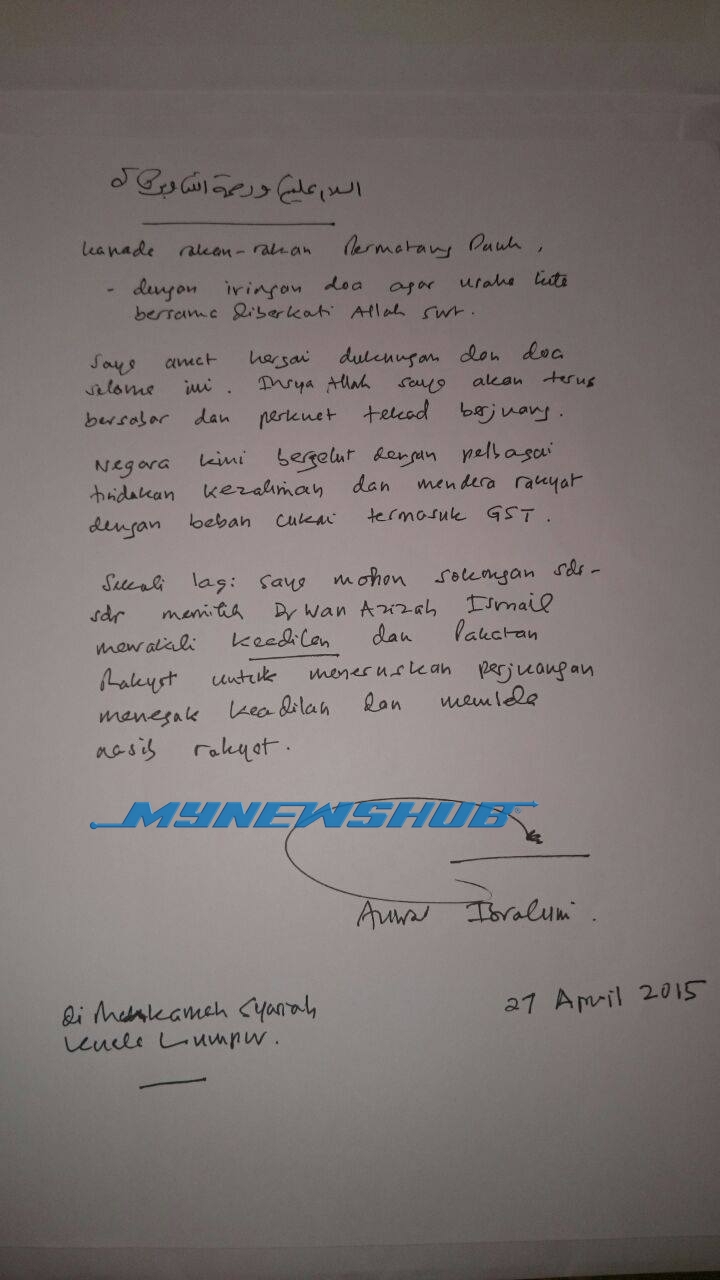 السلام عليكم ورحمة الله وبركاته
kepada rakan-rakan Permatang Pauh,
- dengan iringan doa agar usaha kita
bersama diberkati Allah swt.
Saya amat hargai dukungan dan doa
selama ini. Insya Allah saya akan terus
bersabar dan perkuat tekad berjuang.
Negara kini bergelut dengan pelbagai
tindakan kezaliman dan mendera rakyat
dengan beban cukai termasuk GST.
Sekali lagi saya mohon sokongan sdr-
sdr memilih Dr Wan Azizah Ismail
mewakili keadilan dan Pakatan
Rakyat untuk meneruskan perjuangan
menegak keadilan dan membela
nasib rakyat.
MYNEWSHUB
Anwar Ibrahim.
di Mahkamah Syariah
Kuala Lumpur.
27 April 2015